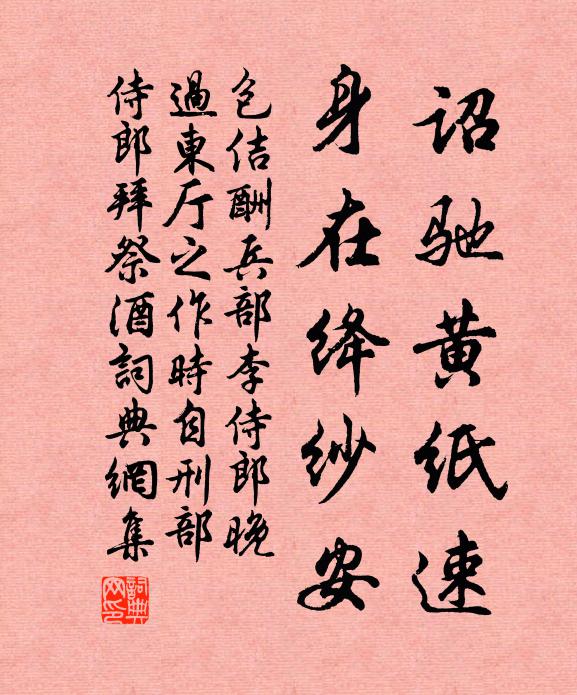 诏驰黄纸速
身在绛纱安
包佶酬兵部李侍郎晚
過東厅之作時自刑部
侍郎拜祭酒詞典網集
詞典網印